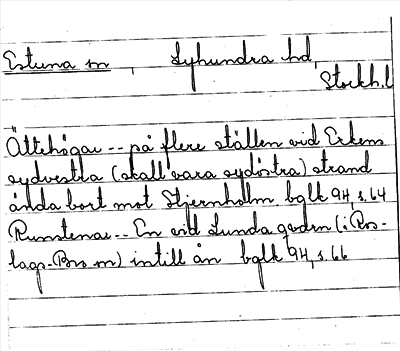 Estuna sn, Lyhundra hd,
Stockh.l
Ättehögar -- på flere ställen vid Erkens
sydvestra (skall vara sydöstra) strand
ända bort mot Stjernholm. bglk 94, s. 64
Runstenar -- En vid Lunda gården (i Ros-
lags-Bro sn) intill ån bglk 94, s. 66